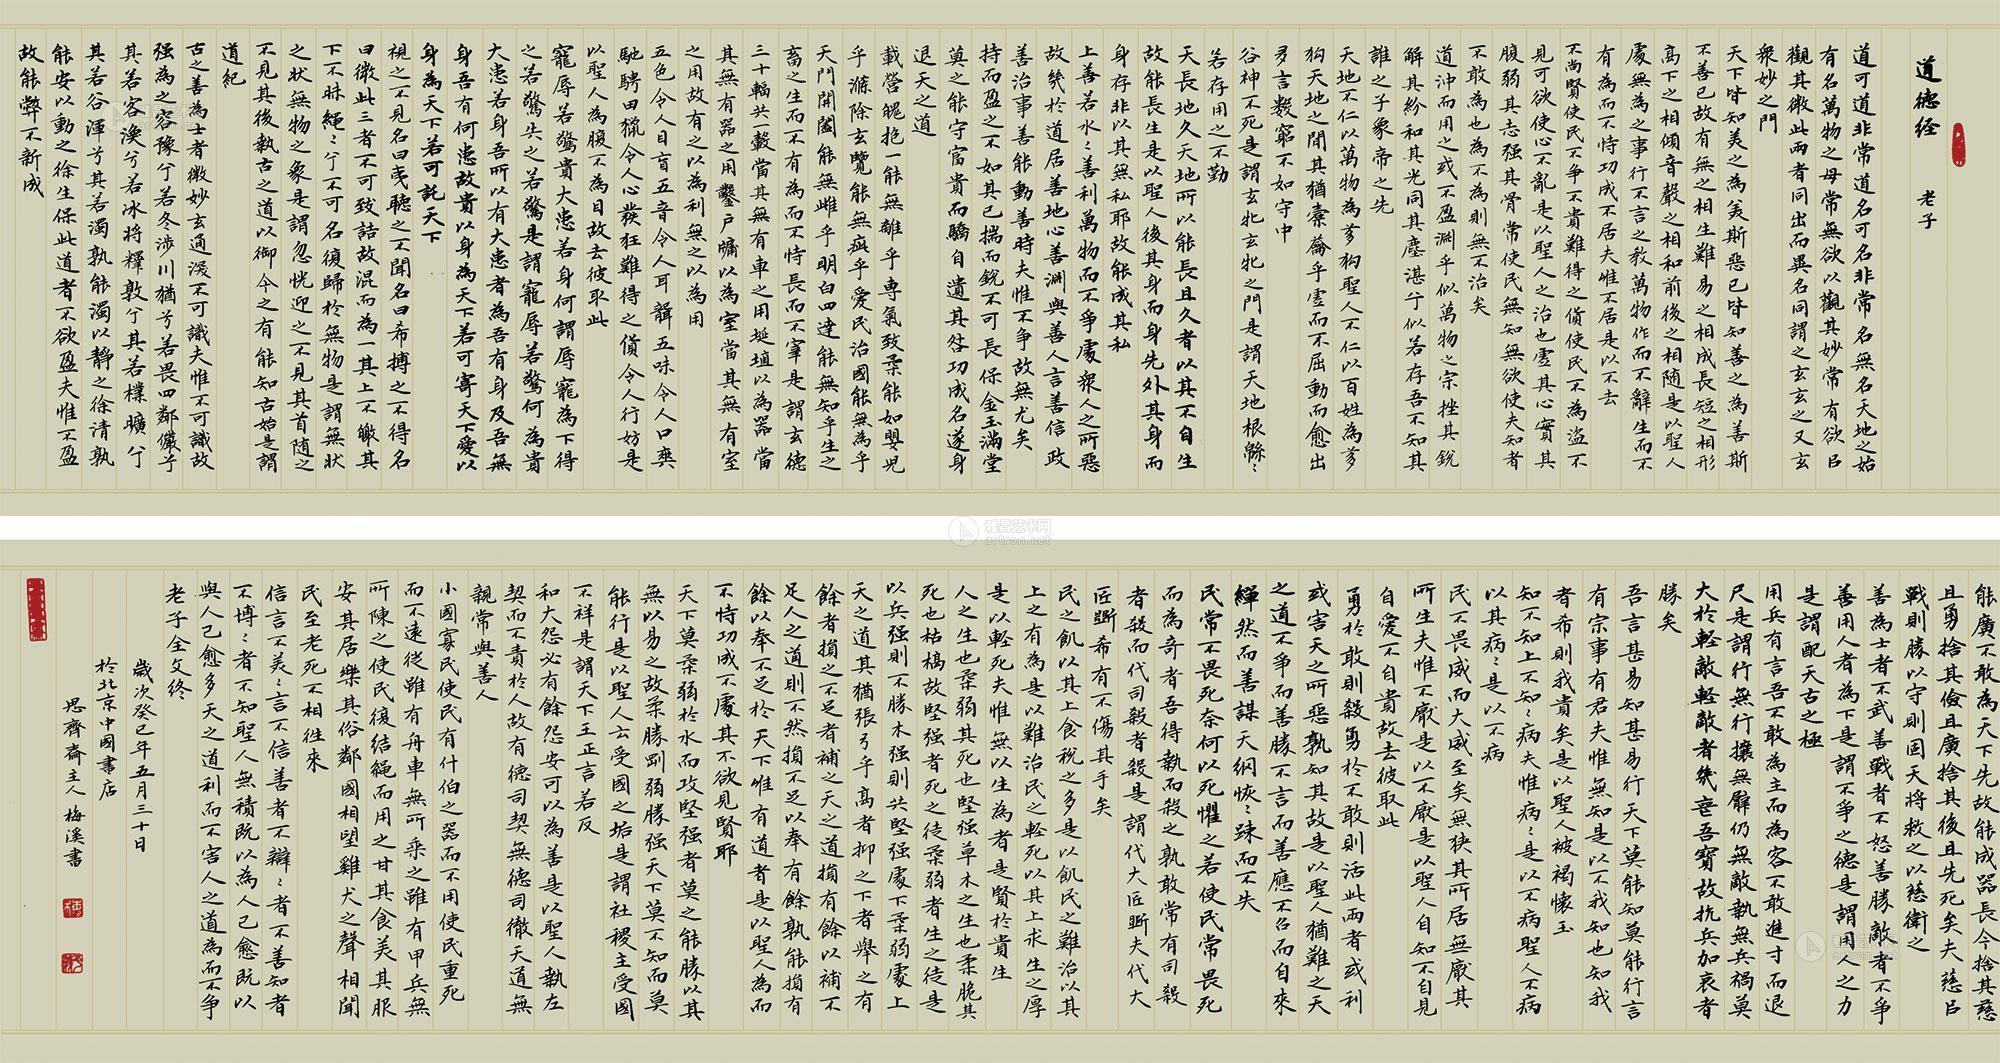 道德经 老子
道可道非常道名可名非常名無名天地之始
有名萬物之母常無欲以觀其妙常有欲以
觀其徼此兩者同出而異名同謂之玄玄之又玄
衆妙之門
天下皆知美之為美斯惡已皆知善之為善斯
不善已故有無之相生難易之相成長短之相形
高下之相傾音聲之相和前後之相随是以聖人
處無為之事行不言之教萬物作而不辭生而不
有為而不恃功成不居夫惟不居是以不去
不尚賢使民不爭不貴難得之貨使民不為盗不
見可欲使心不亂是以聖人之治也虛其心實其
腹弱其志强其骨常使民無知無欲使夫知者
不敢為也為不為則無不治矣
道沖而用之或不盈淵乎似萬物之宗挫其銳
解其紛和其光同其塵湛兮似若存吾不知其
誰之子象帝之先
天地不仁以萬物為芻狗聖人不仁以百姓為芻
狗天地之間其猶橐籥乎虛而不屈動而愈出
多言數窮不如守中
谷神不死是謂玄牝玄牝之門是謂天地根緜〻
若存用之不勤
天長地久天地所以能長且久者以其不自生
故能長生是以聖人後其身而身先外其身而
身存非以其無私耶故能成其私
上善若水〻善利萬物而不爭處衆人之所惡
故幾於道居善地心善淵與善人言善信政
善治事善能動善時夫惟不爭故無尤矣
持而盈之不如其已揣而銳不可長保金玉滿堂
莫之能守富貴而驕自遺其咎功成名遂身
退天之道
載營魄抱一能無離乎専氣致柔能如嬰兒
乎滌除玄覽能無疵乎愛民治國能無為乎
天門開闔能無雌乎明白四達能無知乎生之
畜之生而不有為而不恃長而不宰是謂玄德
三十輻共一轂當其無有車之用埏埴以為器當
其無有器之用鑿戶牖以為室當其無有室
之用故有之以為利無之以為用
五色令人目盲五音令人耳聾五味令人口爽
馳騁田獵令人心發狂難得之貨令人行妨是
以聖人為腹不為目故去彼取此
寵辱若驚貴大患若身何謂辱寵為下得
之若驚失之若驚是謂寵辱若驚何為貴
大患若身吾所以有大患者為吾有身及吾無
身吾有何患故貴以身為天下若可寄天下愛以
身為天下若可託天下
視之不見名曰夷聽之不聞名曰希搏之不得名
曰微此三者不可致詰故混而為一其上不皦其
下不昧繩〻兮不可名復歸於無物是謂無狀
之狀無物之象是謂忽恍迎之不見其首随之
不見其後執古之道以御今之有能知古始是謂
道紀
古之善為士者微妙玄通深不可識夫惟不可識故
强為之容豫兮若冬涉川猶兮若畏四鄰儼兮
其若客渙兮若冰將釋敦兮其若樸曠兮
其若谷渾兮其若濁孰能濁以靜之徐清孰
能安以動之徐生保此道者不欲盈夫惟不盈
故能弊不新成
能廣不敢為天下先故能成器長今捨其慈
且勇捨其儉且廣捨其後且先死矣夫慈以
戰則勝以守則固天將救之以慈衛之
善為士者不武善戰者不怒善勝敵者不爭
善用人者為下是謂不爭之德是謂用人之力
是謂配天古之極
用兵有言吾不敢為主而為客不敢進寸而退
尺是謂行無行攘無臂仍無敵執無兵禍莫
大於輕敵輕敵者幾喪吾寶故抗兵加哀者
勝矣
吾言甚易知甚易行天下莫能知莫能行言
有宗事有君夫惟無知是以不我知也知我
者希則我貴矣是以聖人被褐懷玉
知不知上不知〻病夫惟病〻是以不病聖人不病
以其病〻是以不病
民不畏威而大威至矣無狹其所居無厭其
所生夫惟不厭是以不厭是以聖人自知不自見
自愛不自貴故去彼取此
勇於敢則殺勇於不敢則活此兩者或利
或害天之所惡孰知其故是以聖人猶難之天
之道不爭而善勝不言而善應不召而自來
繟然而善謀天網恢〻踈而不失
民常不畏死奈何以死懼之若使民常畏死
而為奇者吾得執而殺之孰敢常有司殺
者殺而代司殺者殺是謂代大匠斲夫代大
匠斲希有不傷其手矣
民之飢以其上食稅之多是以飢民之難治以其
上之有為是以難治民之輕死以其上求生之厚
是以輕死夫惟無以生為者是賢於貴生
人之生也柔弱其死也堅强草木之生也柔脆其
死也枯槁故堅强者死之徒柔弱者生之徒是
以兵强則不勝木强則共堅强處下柔弱處上
天之道其猶張弓乎高者抑之下者舉之有
餘者損之不足者補之天之道損有餘以補不
足人之道則不然損不足以奉有餘孰能損有
餘以奉不足於天下惟有道者是以聖人為而
不恃功成不處其不欲見賢耶
天下莫柔弱於水而攻堅强者莫之能勝以其
無以易之故柔勝剛弱勝强天下莫不知而莫
能行是以聖人云受國之垢是謂社稷主受國
不祥是謂天下王正言若反
和大怨必有餘怨安可以為善是以聖人執左
契而不責於人故有德司契無德司徹天道無
親常與善人
小國寡民使民有什伯之器而不用使民重死
而不遠徙雖有舟車無所乘之雖有甲兵無
所陳之使民復结繩而用之甘其食美其服
安其居樂其俗鄰國相望雞犬之聲相聞
民至老死不相往來
信言不美〻言不信善者不辯〻者不善知者
不博〻者不知聖人無積既以為人己愈既以
與人己愈多天之道利而不害人之道為而不爭
老子全文终
歲次癸巳年五月三十日
於北京中國書店
思齊齋主人梅溪書
雅昌艺术网
artron.net